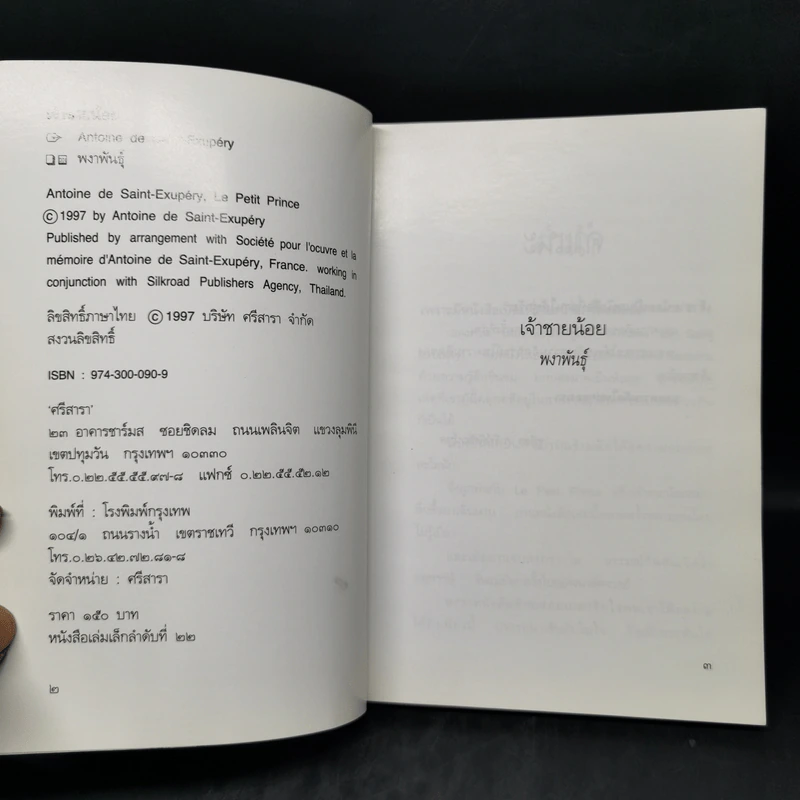 Antoine de Saint-Exupéry
พงาพันธุ์
Antoine de Saint-Exupéry, Le Petit Prince
©1997 by Antoine de Saint-Exupéry
Published by arrangement with Société pour l'ocuvre et la
mémoire d'Antoine de Saint-Exupéry, France. working in
conjunction with Silkroad Publishers Agency, Thailand.
ลิขสิทธิ์ภาษาไทย ©1997 บริษัท ศรีสารา จำกัด
สงวนลิขสิทธิ์
ISBN : 974-300-090-9
'ศรีสารา'
๒๓ อาคารชาร์มส ซอยชิดลม ถนนเพลินจิต แขวงลุมพินี
เขตปทุมวัน กรุงเทพฯ ๑๐๓๓๐
โทร.๐.๒๒.๕๕.๕๕.๙๗-๘ แฟกซ์ ๐.๒๒.๕๕.๕๒.๑๒
พิมพ์ที่ : โรงพิมพ์กรุงเทพ
๑๐๔/๑ ถนนรางน้ำ เขตราชเทวี กรุงเทพฯ ๑๐๓๑๐
โทร.๐.๒๖.๔๒.๗๒.๘๑-๘
จัดจำหน่าย : ศรีสารา
ราคา ๑๕๐ บาท
หนังสือเล่มเล็กลำดับที่ ๒๒
๒
เจ้าชายน้อย
พงาพันธุ์
๓